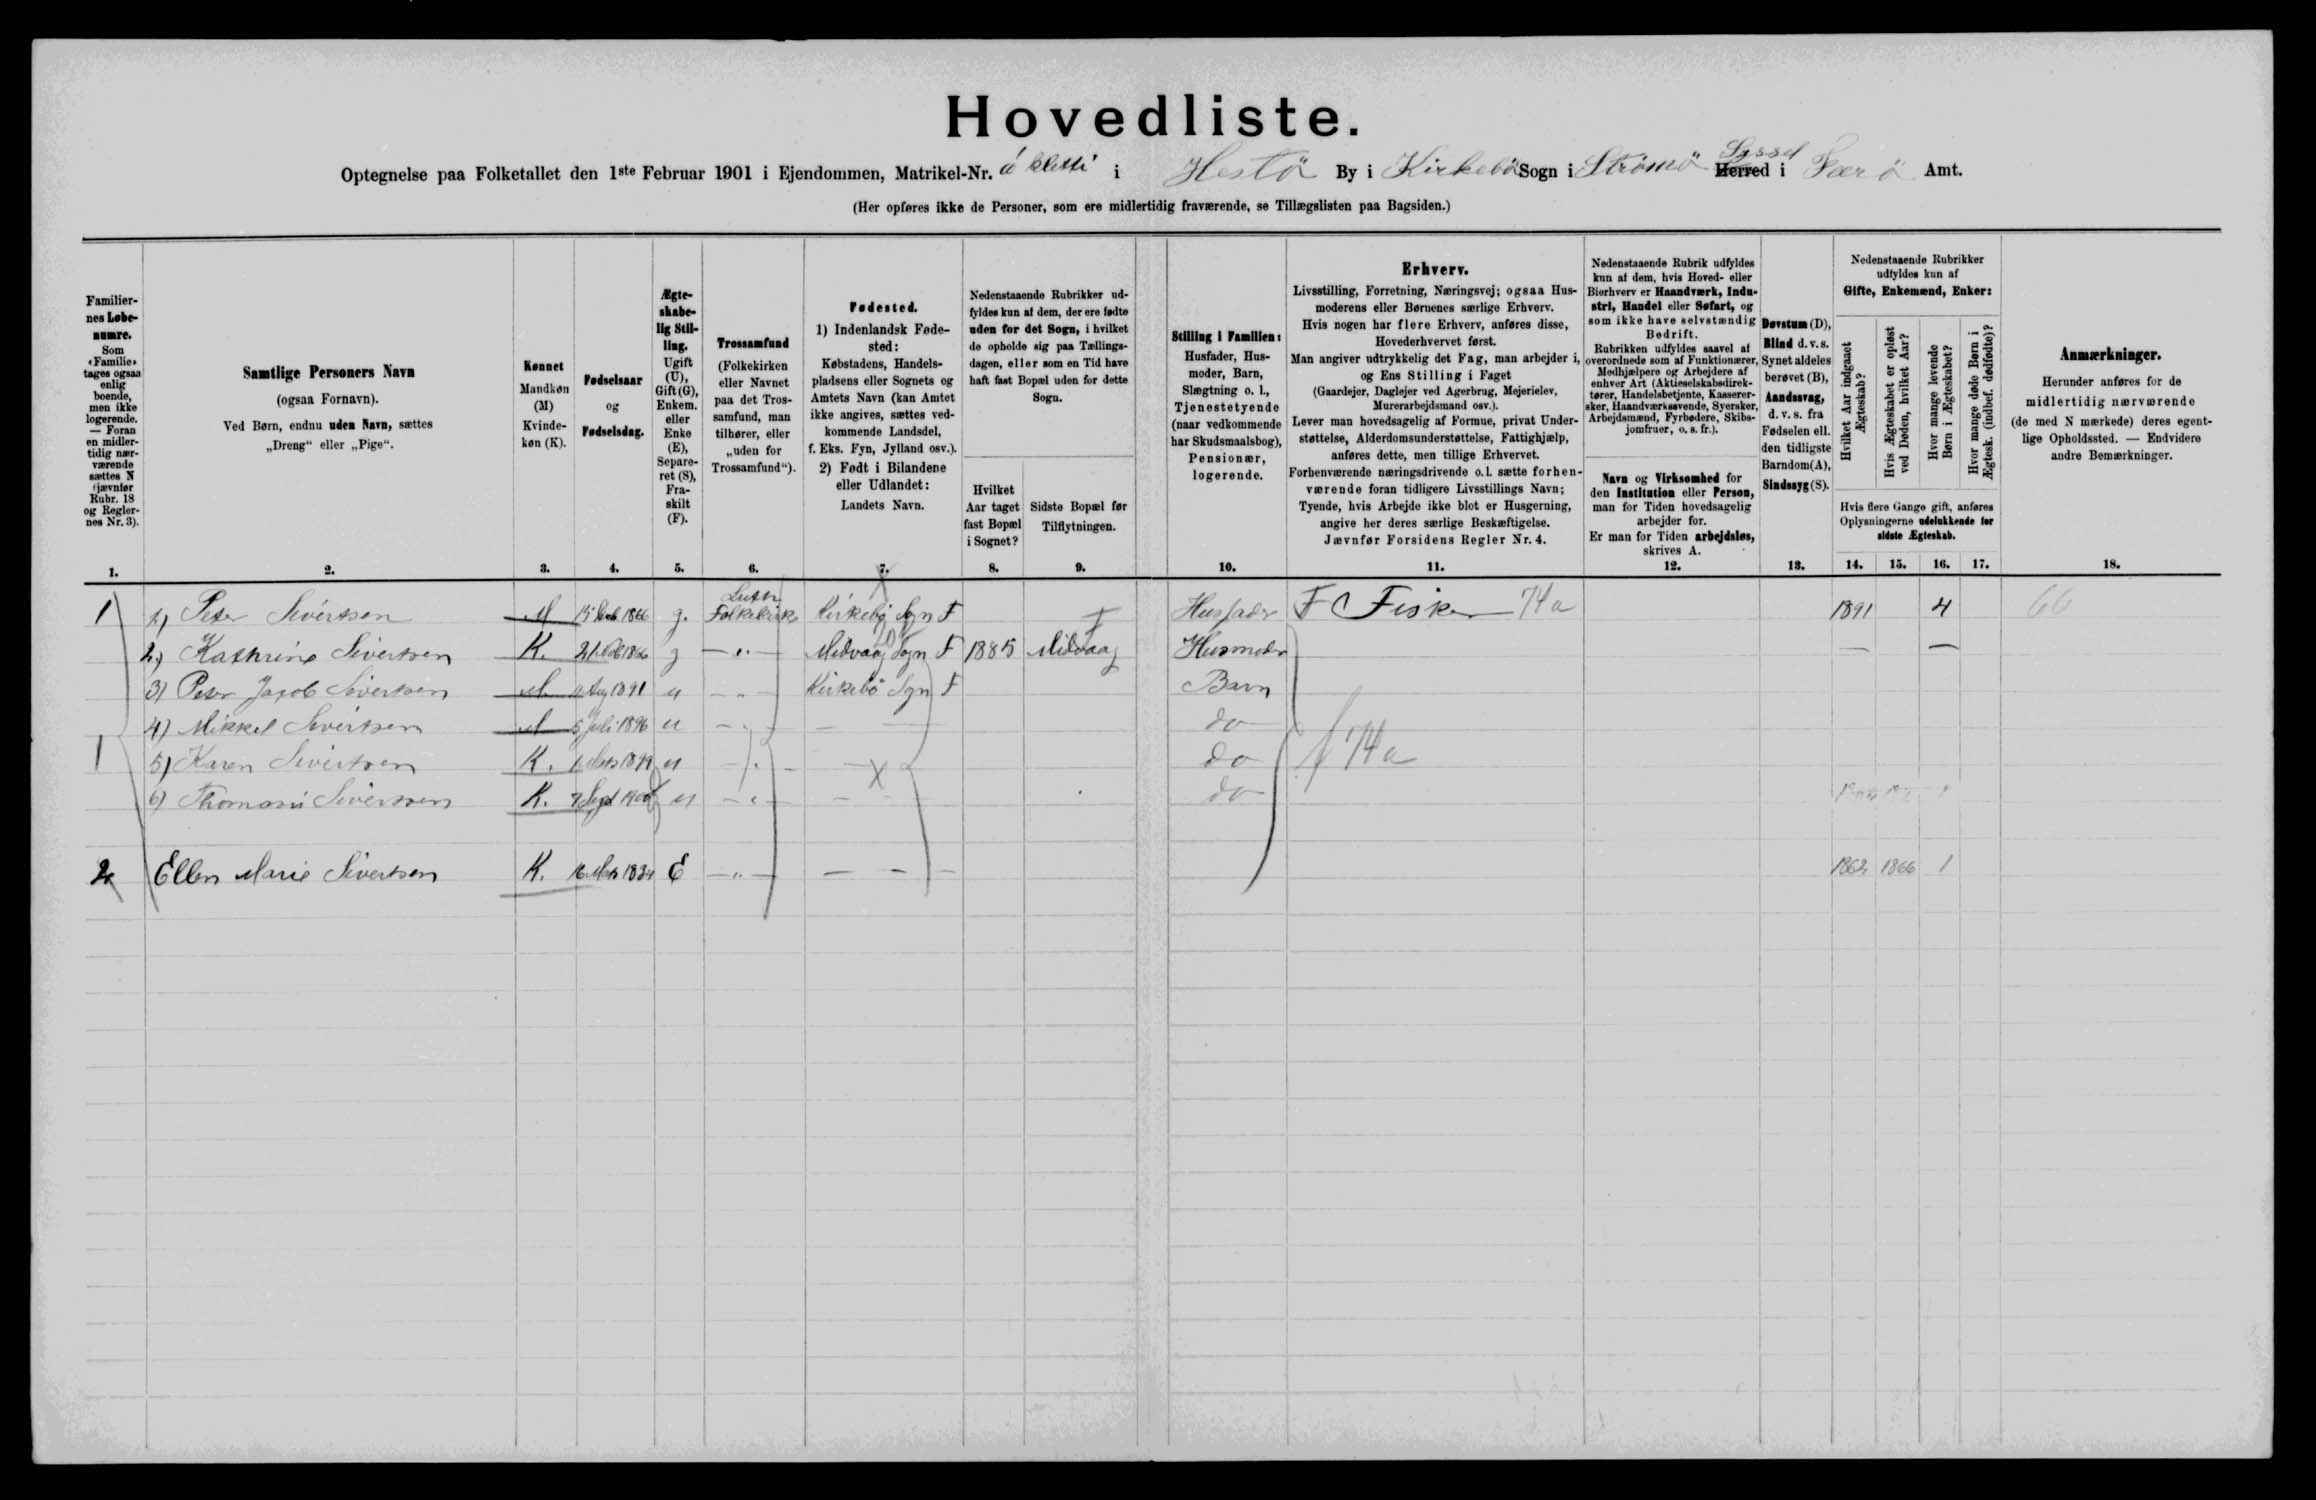 Hovedliste.
Optegnelse paa Folketallet den 1ste Februar 1901 i Ejendommen, Matrikel-Nr. á kletti i Hestö By i Kirkebö Sogn i Strömö Syssel Herred i Færö Amt.
(Her opføres ikke de Personer, som ere midlertidig fraværende, se Tillægslisten paa Bagsiden.)
Familiernes Løbenumre.
Som «Familie» tages ogsaa enlig boende, men ikke logerende. — Foran en midlertidig nærværende sættes N (jævnfør Rubr. 18 og Reglernes Nr. 3).
Samtlige Personers Navn
(ogsaa Fornavn).
Ved Børn, endnu uden Navn, sættes
„Dreng“ eller „Pige“.
Kønnet
Mandkøn (M)
Kvindekøn (K).
Fødselsaar
og
Fødselsdag.
Ægteskabelig Stilling.
Ugift (U), Gift (G), Enkem. eller Enke (E), Separeret (S), Fraskilt (F).
Trossamfund
(Folkekirken eller Navnet paa det Trossamfund, man tilhører, eller „uden for Trossamfund“).
Fødested.
1) Indenlandsk Fødested:
Købstadens, Handelspladsens eller Sognets og Amtets Navn (kan Amtet ikke angives, sættes vedkommende Landsdel, f. Eks. Fyn, Jylland osv.).
2) Født i Bilandene eller Udlandet:
Landets Navn.
Nedenstaaende Rubrikker udfyldes kun af dem, der ere fødte uden for det Sogn, i hvilket de opholde sig paa Tællingsdagen, eller som en Tid have haft fast Bopæl uden for dette Sogn.
Hvilket Aar taget fast Bopæl i Sognet?
Sidste Bopæl før Tilflytningen.
Stilling i Familien:
Husfader, Husmoder, Barn, Slægtning o. l., Tjenestetyende (naar vedkommende har Skudsmaalsbog), Pensionær, logerende.
Erhverv.
Livsstilling, Forretning, Næringsvej; ogsaa Husmoderens eller Børnenes særlige Erhverv.
Hvis nogen har flere Erhverv, anføres disse, Hovederhvervet først.
Man angiver udtrykkelig det Fag, man arbejder i, og Ens Stilling i Faget
(Gaardejer, Daglejer ved Agerbrug, Mejerielev, Murerarbejdsmand osv.).
Lever man hovedsagelig af Formue, privat Understøttelse, Alderdomsunderstøttelse, Fattighjælp, anføres dette, men tillige Erhvervet.
Forhenværende næringsdrivende o. l. sætte forhenværende foran tidligere Livsstillings Navn;
Tyende, hvis Arbejde ikke blot er Husgerning, angive her deres særlige Beskæftigelse.
Jævnfør Forsidens Regler Nr. 4.
Nedenstaaende Rubrik udfyldes kun af dem, hvis Hoved- eller Bierhverv er Haandværk, Industri, Handel eller Søfart, og som ikke have selvstændig Bedrift.
Rubrikken udfyldes saavel af overordnede som af Funktionærer, Medhjælpere og Arbejdere af enhver Art (Aktieselskabsdirektører, Handelsbetjente, Kasserersker, Haandværkssvende, Syersker, Arbejdsmænd, Fyrbødere, Skibsjomfruer, o. s. fr.).
Navn og Virksomhed for den Institution eller Person, man for Tiden hovedsagelig arbejder for.
Er man for Tiden arbejdsløs, skrives A.
Døvstum (D), Blind d. v. s. Synet aldeles berøvet (B), Aandssvag, d. v. s. fra Fødselen ell. den tidligste Barndom (A), Sindssyg (S).
Nedenstaaende Rubrikker udfyldes kun af
Gifte, Enkemænd, Enker:
Hvilket Aar indgaaet Ægteskab?
Hvis Ægteskabet er opløst ved Døden, hvilket Aar?
Hvor mange levende Børn i Ægteskabet?
Hvor mange døde Børn i Ægtesk. (indbef. dødfødte)?
Hvis flere Gange gift, anføres Oplysningerne udelukkende for sidste Ægteskab.
Anmærkninger.
Herunder anføres for de midlertidig nærværende (de med N mærkede) deres egentlige Opholdssted. — Endvidere andre Bemærkninger.
1. 2. 3. 4. 5. 6. 7. 8. 9. 10. 11. 12. 13. 14. 15. 16. 17. 18.
1 1) Peter Sivertsen M 1866 g. Luth Folkekirke Kirkebö Sogn F Husfader F Fisker 74a 1891 4 66
2) Kathrine Sivertsen K. 1866 g — " — Midvaag Sogn F 1885 Midvaag Husmoder — —
3) Peter Jacob Sivertsen M Aug 1891 u — " — Kirkebö Sogn F Barn
4) Mikkel Sivertsen M 5 Juli 1896 u — " — — — do
1 5) Karen Sivertsen K. 1 Marts 1899 u — " — — do 74a
6) Thomasine Sivertsen K. 7 Sept 1900 u — " — — — do
2 Ellen Marie Sivertsen K. 16 Marts 1834 E — " — — — — 1862 1866 1